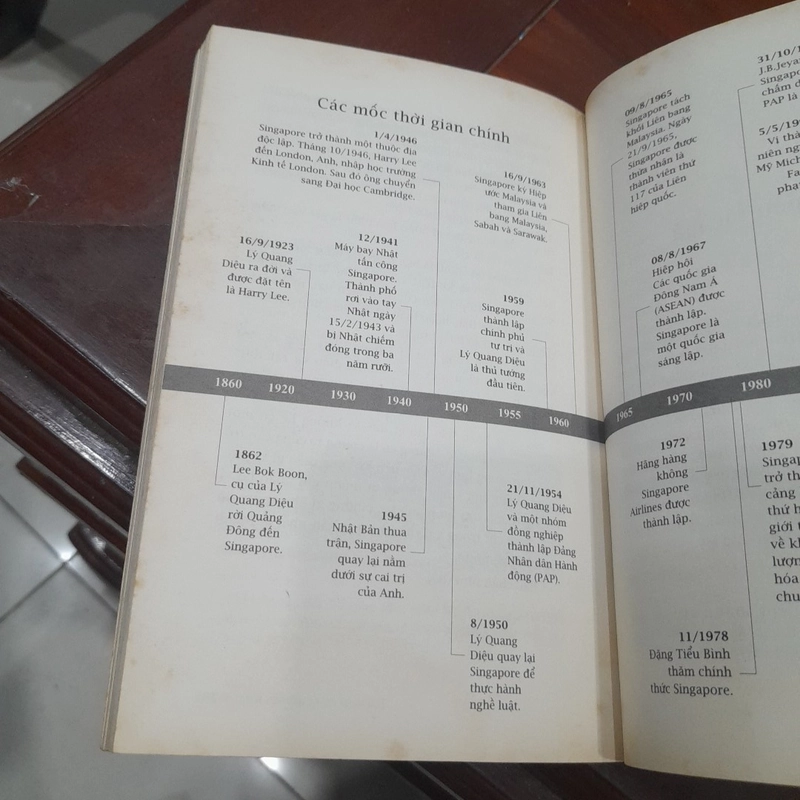 Các mốc thời gian chính
1/4/1946
Singapore trở thành một thuộc địa
độc lập. Tháng 10/1946, Harry Lee
đến London, Anh, nhập học trường
Kinh tế London. Sau đó ông chuyển
sang Đại học Cambridge.
16/9/1963
Singapore ký Hiệp
ước Malaysia và
tham gia Liên
bang Malaysia,
Sabah và Sarawak.
16/9/1923
Lý Quang
Diệu ra đời và
được đặt tên
là Harry Lee.
12/1941
Máy bay Nhật
tấn công
Singapore.
Thành phố
rơi vào tay
Nhật ngày
15/2/1943 và
bị Nhật chiếm
đóng trong ba
năm rưỡi.
1959
Singapore
thành lập
chính phủ
tự trị và
Lý Quang Diệu
là thủ tướng
đầu tiên.
1860 1920 1930 1940 1950 1955 1960
1862
Lee Bok Boon,
cụ của Lý
Quang Diệu
rời Quảng
Đông đến
Singapore.
1945
Nhật Bản thua
trận, Singapore
quay lại nằm
dưới sự cai trị
của Anh.
21/11/1954
Lý Quang Diệu
và một nhóm
đồng nghiệp
thành lập Đảng
Nhân dân Hành
động (PAP).
8/1950
Lý Quang
Diệu quay lại
Singapore để
thực hành
nghề luật.
09/8/1965
Singapore tách
khỏi Liên bang
Malaysia. Ngày
21/9/1965,
Singapore được
thừa nhận là
thành viên thứ
117 của Liên
hiệp quốc.
31/10/1
J.B.Jeya
Singapo
chấm d
PAP là
5/5/19
Vì thà
niên ng
Mỹ Mich
Fa
phạ
08/8/1967
Hiệp hội
Các quốc gia
Đông Nam Á
(ASEAN) được
thành lập.
Singapore là
một quốc gia
sáng lập.
1965 1970 1980
1972
Hãng hàng
không
Singapore
Airlines được
thành lập.
1979
Singap
trở th
cảng
thứ h
giới t
về kh
lượn
hóa
chu
11/1978
Đặng Tiểu Bình
thăm chính
thức Singapore.